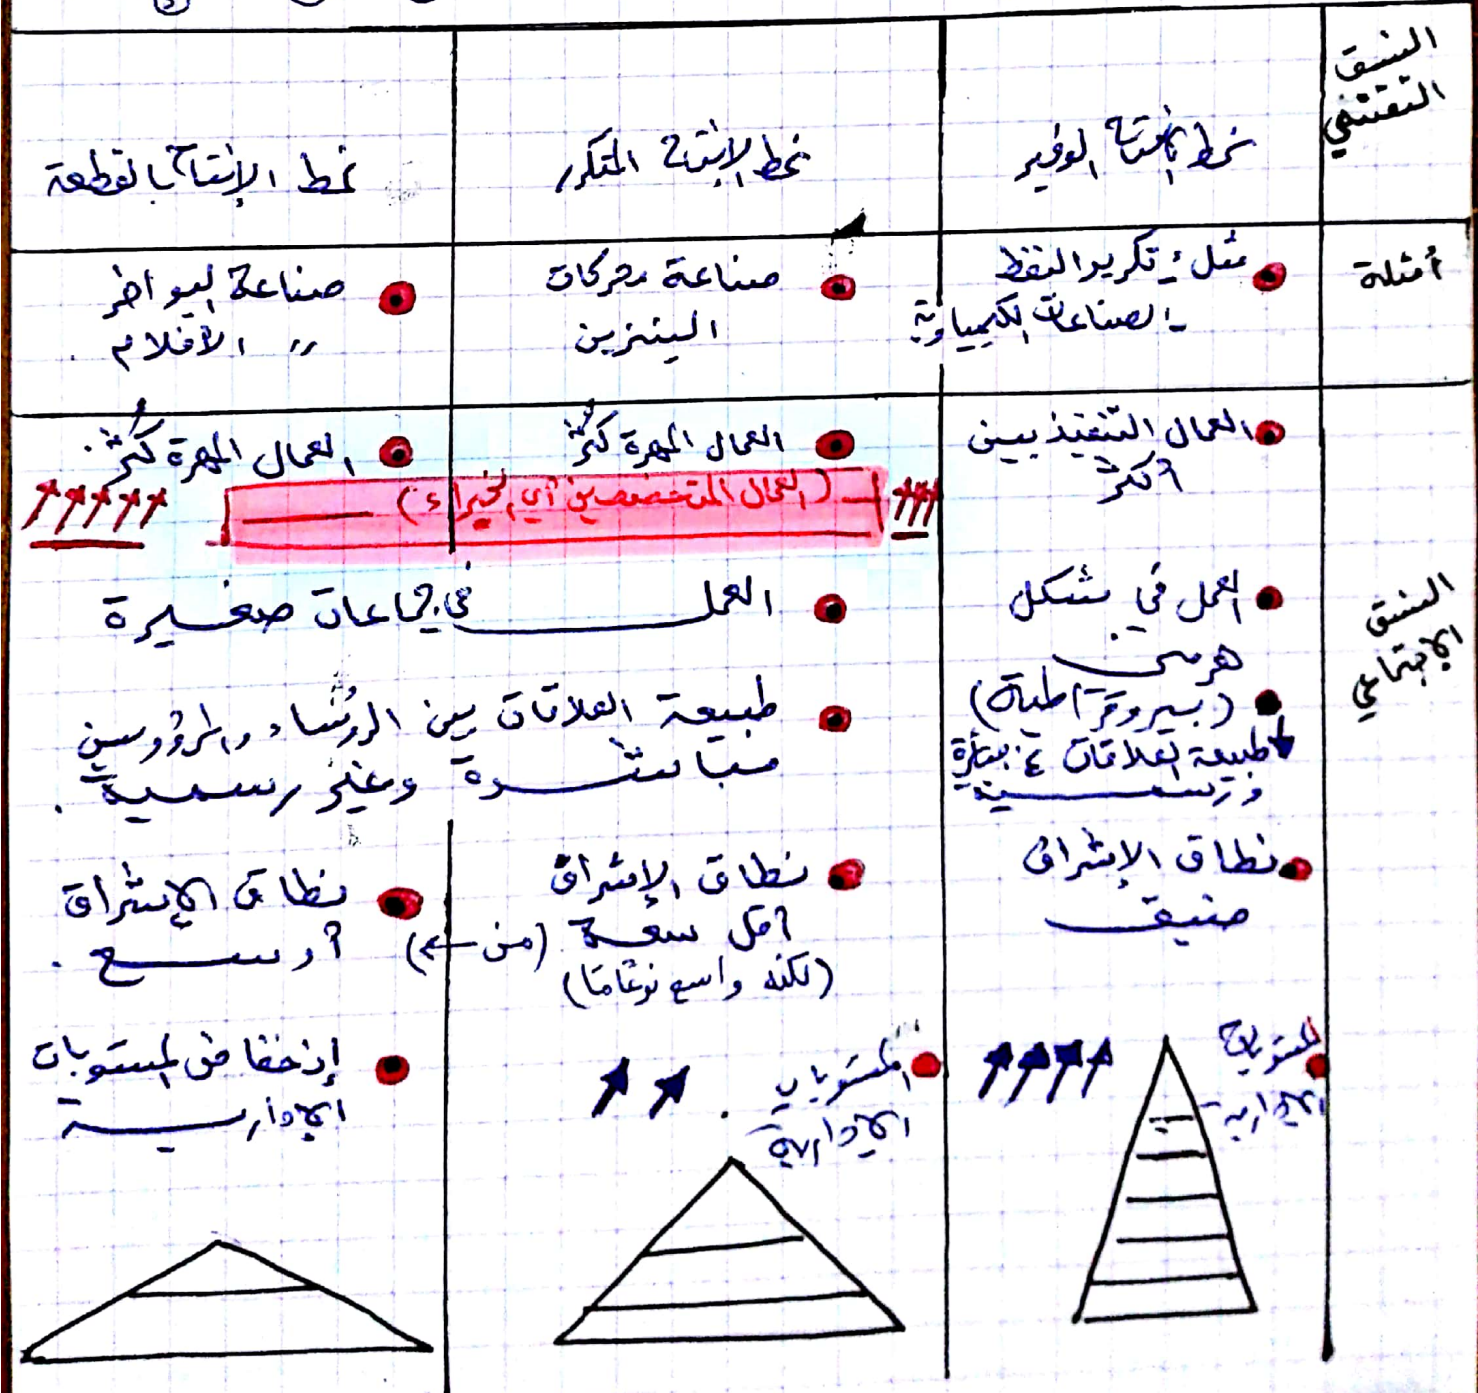 النسق
التقتني
نمط الإنتاج الوفير
نمط الإنتاج المتكرر
نمط الإنتاج بالقطعة
أمثلة
مثل: تكرير النفط
- الصناعات الكيمياوية
صناعة محركات
البنزين
صناعة البواخر
〃 الأفلام .
النسق
الإجتماعي
العمال التنفيذيين
أكثر
العمال المهرة كُثر
العمال المهرة كُثر.
(العمال المتخصصين أي الخبراء)
العمل في شكل
هرمي
(بيروقراطية)
طبيعة العلاقات غ. مباشرة
ورسمية
العمل في جماعات صغيرة
طبيعة العلاقات بين الرؤساء والمرؤوسين
مباشرة وغير رسمية .
نطاق الإشراف
ضيق
نطاق الإشراف
أقل سعة (من ←)
(لكنه واسع نوعًا ما)
نطاق الإشراف
أوسع .
المستويات
الإدارية
المستويات
الإدارية
إنخفاض المستويات
الإدارية